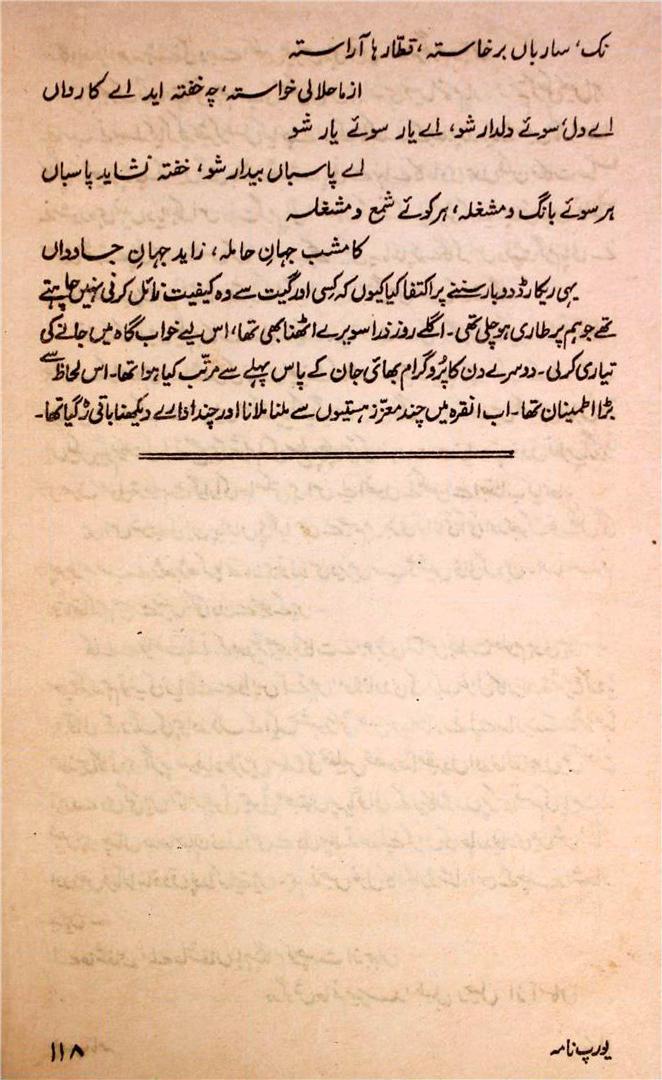 نک، سارباں برخاستہ، قطّار ہا آراستہ
ازما حلالی خواستہ، چہ خفتہ اید اے کارواں
اے دل سوئے دلدار شو، اے یار سوئے یار شو
اے پاسباں بیدار شو، خفتہ نشاید پاسباں
ہر سوئے بانگ و مشغلہ، ہر کوئے شمع و مشغلہ
کامشب جہانِ حاملہ، زاید جہانِ جاوداں
یہی ریکارڈ دوبار سننے پر اکتفا کیا کیوں کہ کسی اور گیت سے وہ کیفیت زائل کرنی نہیں چاہتے
تھے جو ہم پر طاری ہو چلی تھی۔ اگلے روز ذرا سویرے اٹھنا بھی تھا، اس لیے خواب گاہ میں جانے کی
تیاری کرلی۔ دوسرے دن کا پروگرام بھائی جان کے پاس پہلے سے مرتّب کیا ہوا تھا۔ اس لحاظ سے
بڑا اطمینان تھا۔ اب انقرہ میں چند معزّز ہستیوں سے ملنا ملانا اور چند ادارے دیکھنا باقی رہ گیا تھا۔
یورپ نامہ
۱۱۸